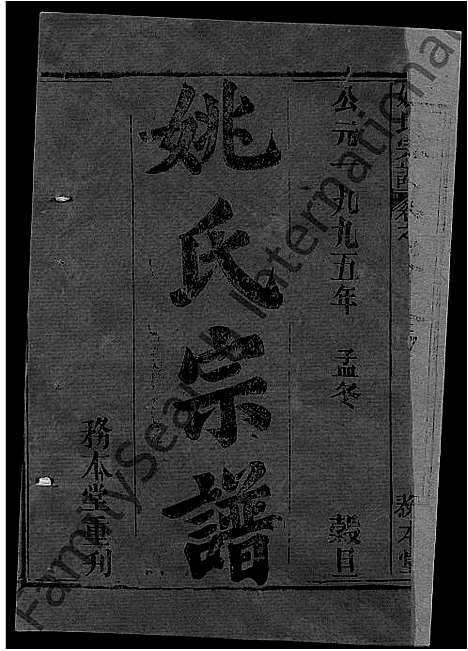 公元一九九五年 孟冬 榖旦
姚氏宗譜
務本堂重刊
姚氏宗譜 卷之
務本堂
FamilySearch International